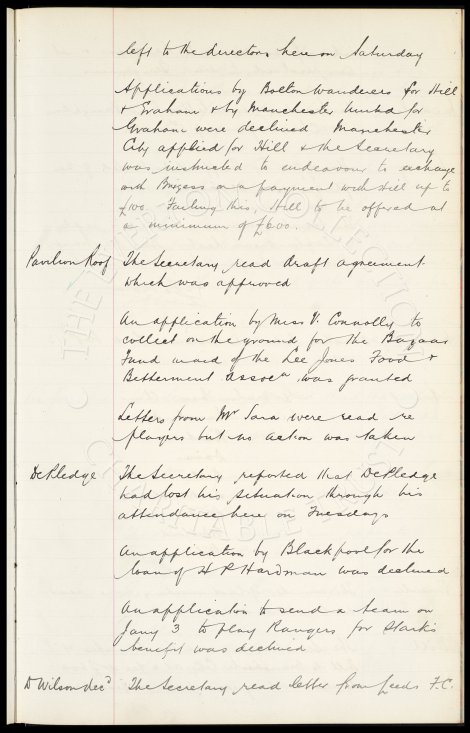 left to the directors here on Saturday
Applications by Bolton Wanderers for Hill
& Graham & by Manchester United for
Graham were declined Manchester
City applied for Hill & the Secretary
was instructed to endeavour to exchange
with Burgess on a payment with Hill up to
£100. Failing this, Hill to be offered at
a minimum of £600.
Pavilion Roof The Secretary read draft agreement
which was approved
An application by Miss V. Connolly to
collect on the ground for the Bazaar
Fund in aid of the Lee Jones Food &
Betterment Assocn was granted
Letters from Mr Sara were read re
players but no action was taken
DePledge The Secretary reported that DePledge
had lost his situation through his
attendance here on Tuesdays
An application by Blackpool for the
loan of H P Hardman was declined
An application to send a team on
Jany 3 to play Rangers for Stark's
benefit was declined
D Wilson decd The Secretary read letter from Leeds F.C.